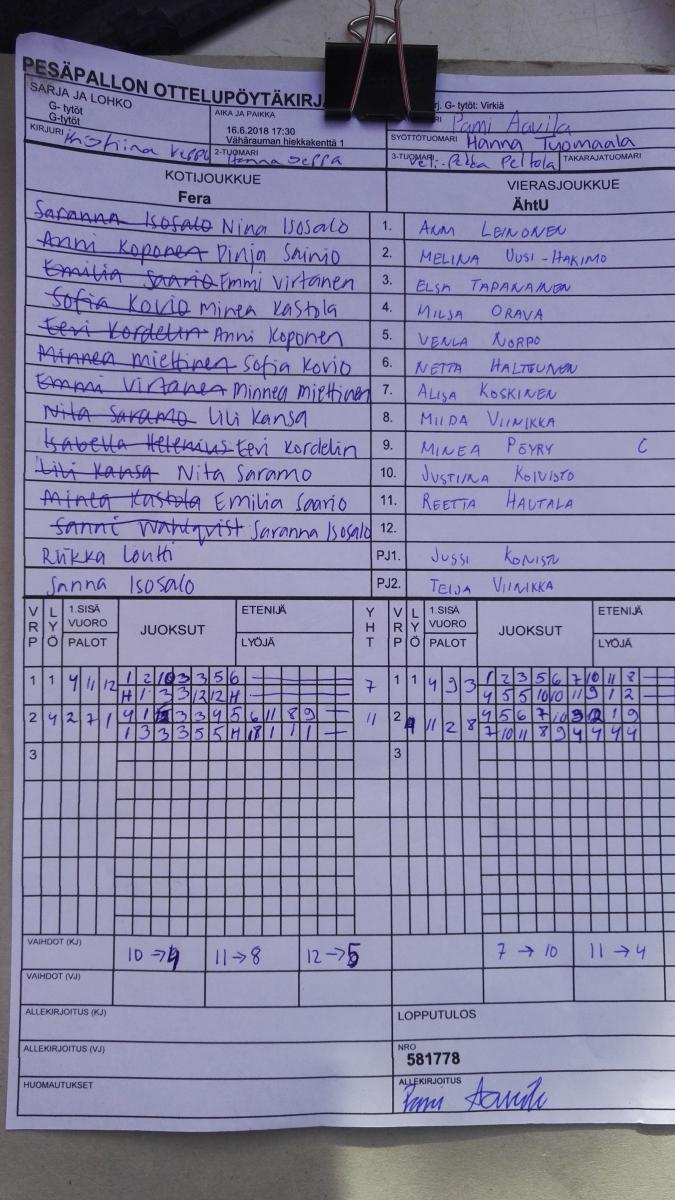 PESÄPALLON OTTELUPÖYTÄKIRJA
SARJA JA LOHKO
G- tytöt
G-tytöt
AIKA JA PAIKKA
16.6.2018 17:30
Vähärauman hiekkakenttä 1
rj. G- tytöt: Virkiä
Pami Aavila
SYÖTTÖTUOMARI Hanna Tyomaala
KIRJURI Kristiina
2-TUOMARI Hanna Seppä
3-TUOMARI Veli-Pekka Peltola
TAKARAJATUOMARI
KOTIJOUKKUE
Fera
VIERASJOUKKUE
ÄhtU
Saranna Isosalo Nina Isosalo 1. ANNI LEINONEN
Anni Koponen Pinja Sainio 2. MELINA UUSI-HAKIMO
Emilia Saario Emmi Virtanen 3. ELSA TAPANAINEN
Sofia Kovio Minea Kastola 4. MILJA ORAVA
Eevi Kordelin Anni Koponen 5. VENLA NORPO
Minnea Miettinen Sofia Kovio 6. NETTA HALTTUNEN
Emmi Virtanen Minnea Miettinen 7. ALISA KOSKINEN
Nita Saramo Lili Kansa 8. MIIDA VIINIKKA
Isabella Helenius Eevi Kordelin 9. MINEA PÖYRY C
Lili Kansa Nita Saramo 10. JUSTIINA KOIVISTO
Minea Kastola Emilia Saario 11. REETTA HAUTALA
Sanni Wahlqvist Saranna Isosalo 12.
Riikka Lontti PJ1. JUSSI KONISTO
Sanna Isosalo PJ2. TEIJA VIINIKKA
VRP LYÖ 1.SISÄ VUORO PALOT JUOKSUT ETENIJÄ LYÖJÄ YHT
VRP LYÖ 1.SISÄ VUORO PALOT JUOKSUT ETENIJÄ LYÖJÄ
1 1 4 11 12 1 2 10 3 3 5 6 7
H 1 3 3 12 12 H
1 1 4 9 3 1 2 3 5 6 7 10 11 8
4 5 5 10 10 11 9 1 2
2 4 2 7 1 4 1 3 3 4 5 6 11 8 9 11
1 3 3 3 5 5 H 1 1 1
2 11 2 8 4 5 6 7 10 1 9
7 10 11 8 9 4 4 4 4
3
3
VAIHDOT (KJ) 10→9 11→8 12→5 7→10 11→4
VAIHDOT (VJ)
ALLEKIRJOITUS (KJ)
LOPPUTULOS
ALLEKIRJOITUS (VJ)
NRO
581778
HUOMAUTUKSET
ALLEKIRJOITUS
Pami Aavila